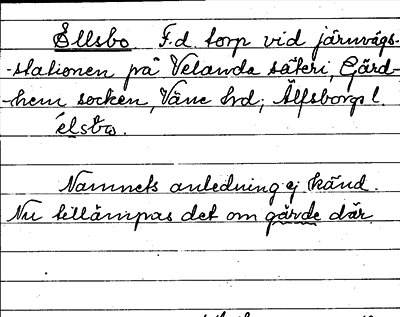 Ellsbo F.d. torp vid järnvägs-
-stationen på Velanda säteri, Gärd-
-hem socken, Väne hd; Älfsborgs l.
élsbo.
Namnets anledning ej känd.
Nu tillämpas det om gärde där.